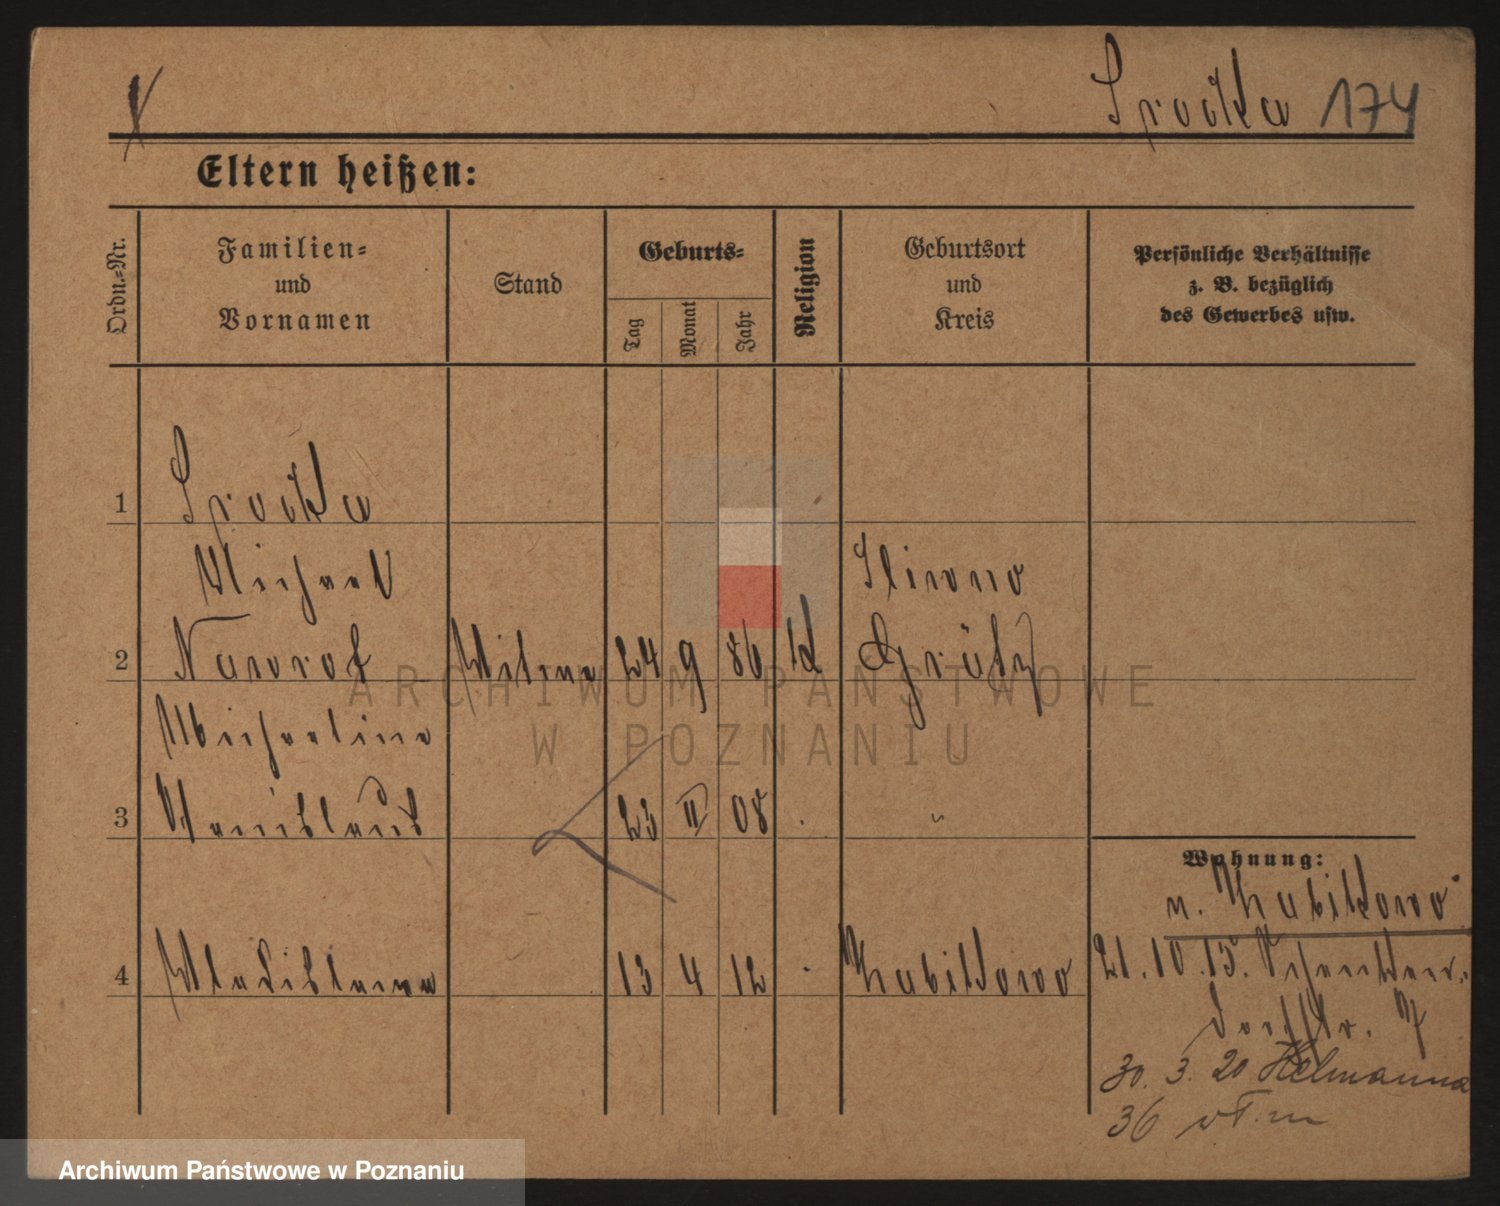 Srocka 174
Eltern heißen:
Ordn.-Nr.
Familien-
und
Vornamen
Stand
Geburts-
Tag
Monat
Jahr
Religion
Geburtsort
und
Kreis
Persönliche Verhältnisse
z. B. bezüglich
des Gewerbes usw.
1 Srocka
Michael
2 Nawrot Witwe 24 9 86 K Grätz
Michaelina
3 Stanislaus 23 II 08 "
Wohnung:
n. Zabikowo
4 Wladislawa 13 4 12 Zabikowo
21.10.15.
Dorfstr. 7
30. 3. 20
36
ARCHIWUM PAŃSTWOWE
W POZNANIU
Archiwum Państwowe w Poznaniu